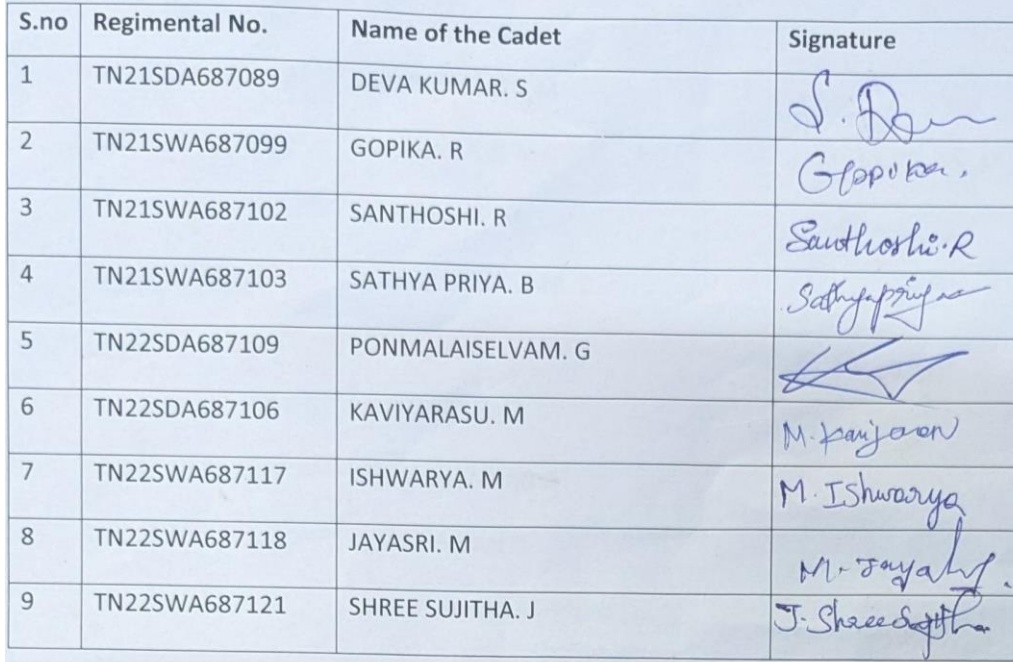 S.no Regimental No. Name of the Cadet Signature
1 TN21SDA687089 DEVA KUMAR. S
2 TN21SWA687099 GOPIKA. R Gopika.
3 TN21SWA687102 SANTHOSHI. R Santhoshi.R
4 TN21SWA687103 SATHYA PRIYA. B Sathyapriya
5 TN22SDA687109 PONMALAISELVAM. G
6 TN22SDA687106 KAVIYARASU. M M.
7 TN22SWA687117 ISHWARYA. M M. Ishwarya
8 TN22SWA687118 JAYASRI. M M.
9 TN22SWA687121 SHREE SUJITHA. J J. Shree Sujitha